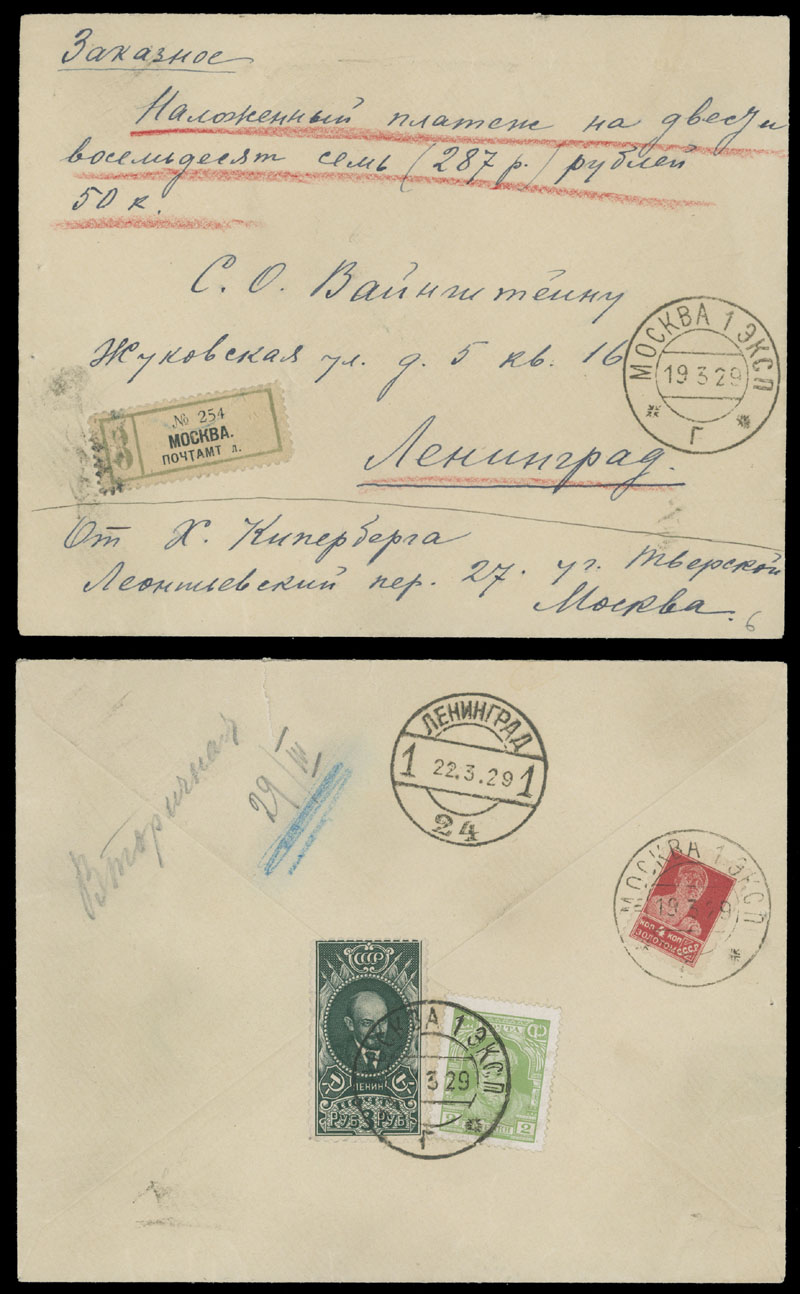 Заказное
Наложенный платеж на двести
восемьдесят семь (287 р.) рублей
50 к.
С. О. Вайнштейну
Жуковская ул. д. 5 кв. 16
МОСКВА 1 ЭКСП
19 3 29
Г
З
№ 254
МОСКВА.
ПОЧТАМТ л.
Ленинград.
От Х. Киперберга
Леонтьевский пер. 27. уг. Тверской
Москва.
6
Вторичная
29/III
ЛЕНИНГРАД
1 22.3.29 1
24
МОСКВА 1 ЭКСП
19 3 29
КОП 4 КОП
ЗОЛОТОМ СССР
СССР
ЛЕНИН
ПОЧТА
РУБ 3 РУБ
ПОЧТА
2
1 ЭКСП
3 29
Г